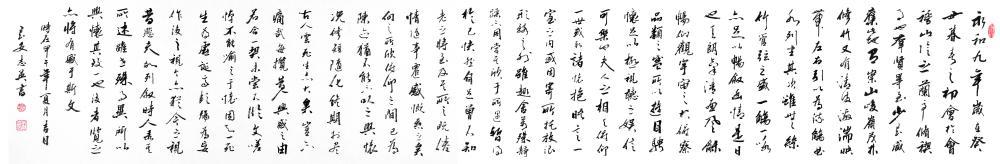 永和九年歲在癸
丑暮春之初會於會
稽山陰之蘭亭脩禊
事也群賢畢至少長
咸集此地有崇山峻領茂林
修竹又有清流激湍映
帶左右引以為流觴曲
水列坐其次雖無絲
竹管弦之盛一觴一詠
亦足以暢敘幽情是日
也天朗氣清惠風和
暢仰觀宇宙之大俯察
品類之盛所以遊目騁
懷足以極視聽之娛信
可樂也夫人之相與俯仰
一世或取諸懷抱晤言一
室之內或因寄所託放浪
形骸之外雖趣舍萬殊靜
躁不同當其欣於所遇暫得
於己快然自足曾不知
老之將至及其所之既倦
情隨事遷感慨係之矣
向之所欣俯仰之間已為
陳跡猶不能不以之興懷
況修短隨化終期於盡
古人云死生亦大矣豈不
痛哉每攬昔人興感之由
若合一契未嘗不臨文嗟
悼不能喻之於懷固知一死
生為虛誕齊彭殤為妄
作後之視今亦猶今之視
昔悲夫故列敘時人錄其
所述雖世殊事異所以
興懷其致一也後之覽者
亦將有感於斯文
時在甲午年夏月吉日
志英書